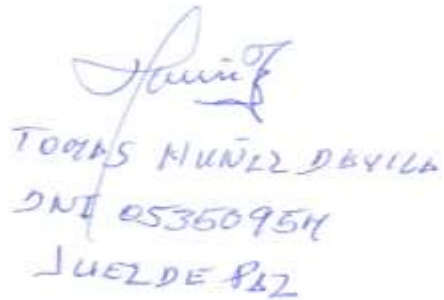 TOMAS MUÑEZ DAVILA
DNI 05356095H
JUEZ DE PAZ